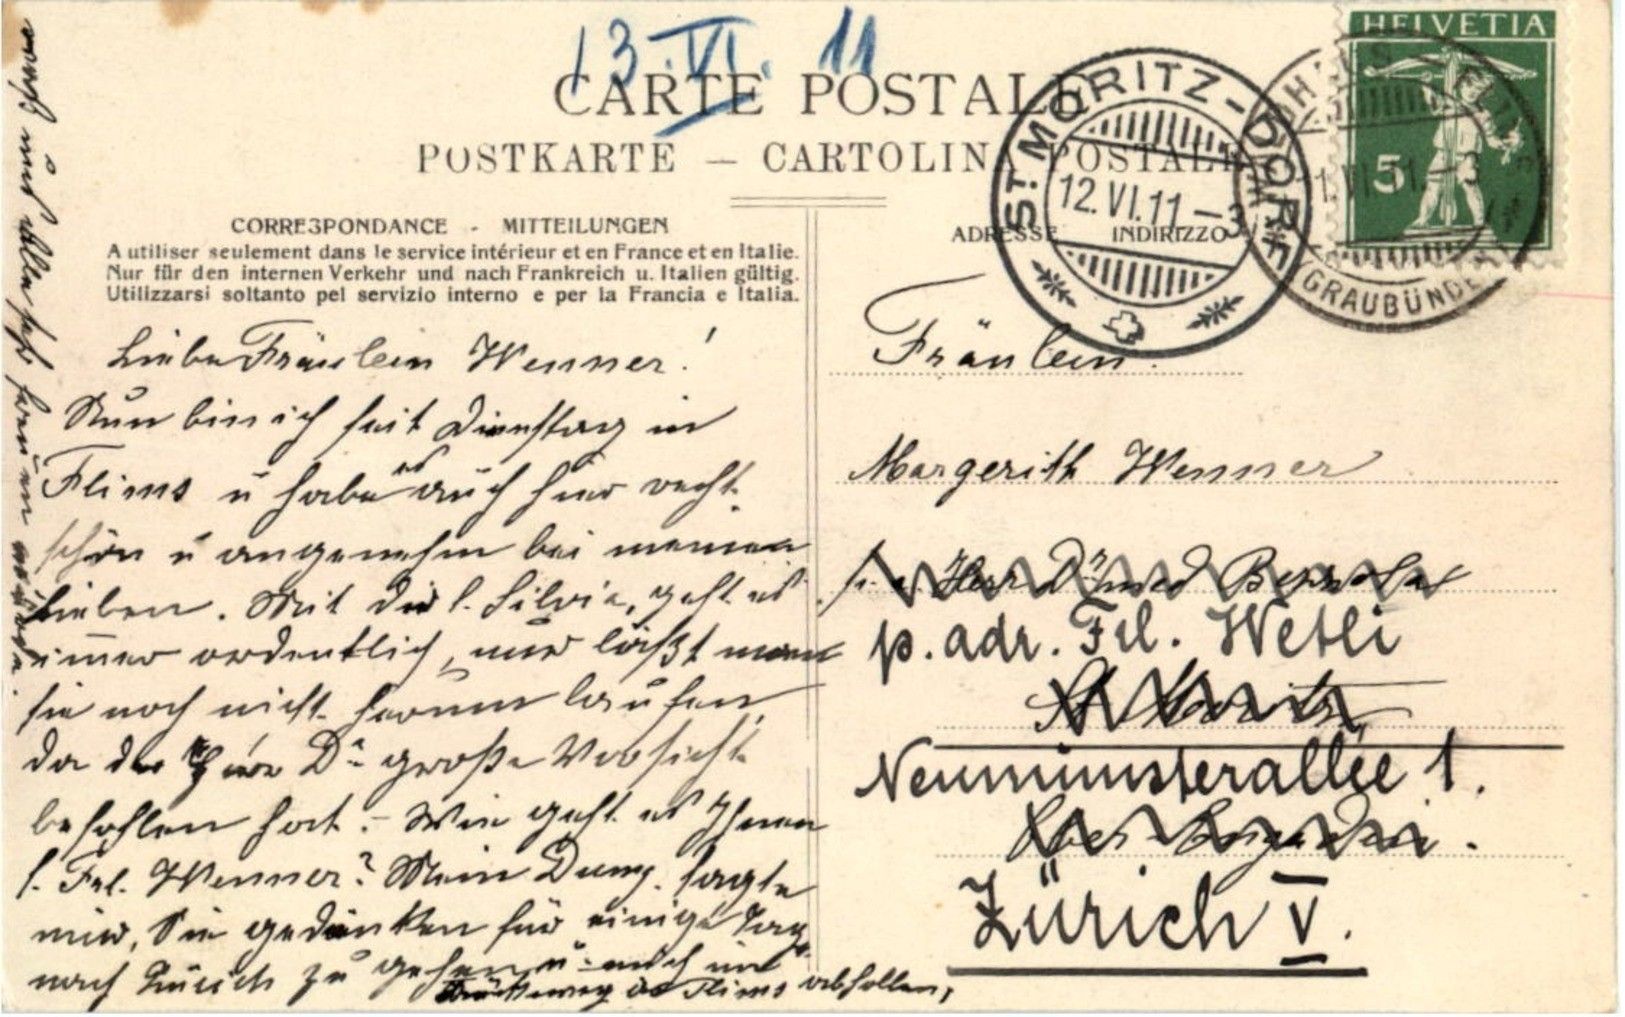 13. VI. 11
CARTE POSTALE
POSTKARTE — CARTOLINA POSTALE
CORRESPONDANCE - MITTEILUNGEN
A utiliser seulement dans le service intérieur et en France et en Italie.
Nur für den internen Verkehr und nach Frankreich u. Italien gültig.
Utilizzarsi soltanto pel servizio interno e per la Francia e Italia.
ADRESSE INDIRIZZO
HELVETIA
5
ST. MORITZ-DORF
12.VI.11-3
GRAUBÜNDEN
Liebe Fräulein Wenner!
Nun bin ich seit Dienstag in
Flims u habe es auch hier recht
schön u angenehm bei meinen
Lieben. Mit der l. Silvia, geht es
immer ordentlich, nur läßt man
sie noch nicht herum laufen,
da der Herr Dr große Vorsicht
befohlen hat. – Wie geht es Ihnen
l. Frl. Wenner? Mein sagte
mir, Sie gedenken für einige Tage
nach Zürich zu gehen u mich im
Flims abhollen,
was uns alle sehr freuen würde.
Fräulein
Margerith Wenner
Herr Dr med
p. adr. Frl. Wetli
St. Moritz
Neumünsterallee 1.
Ober-Engadin.
Zürich V.